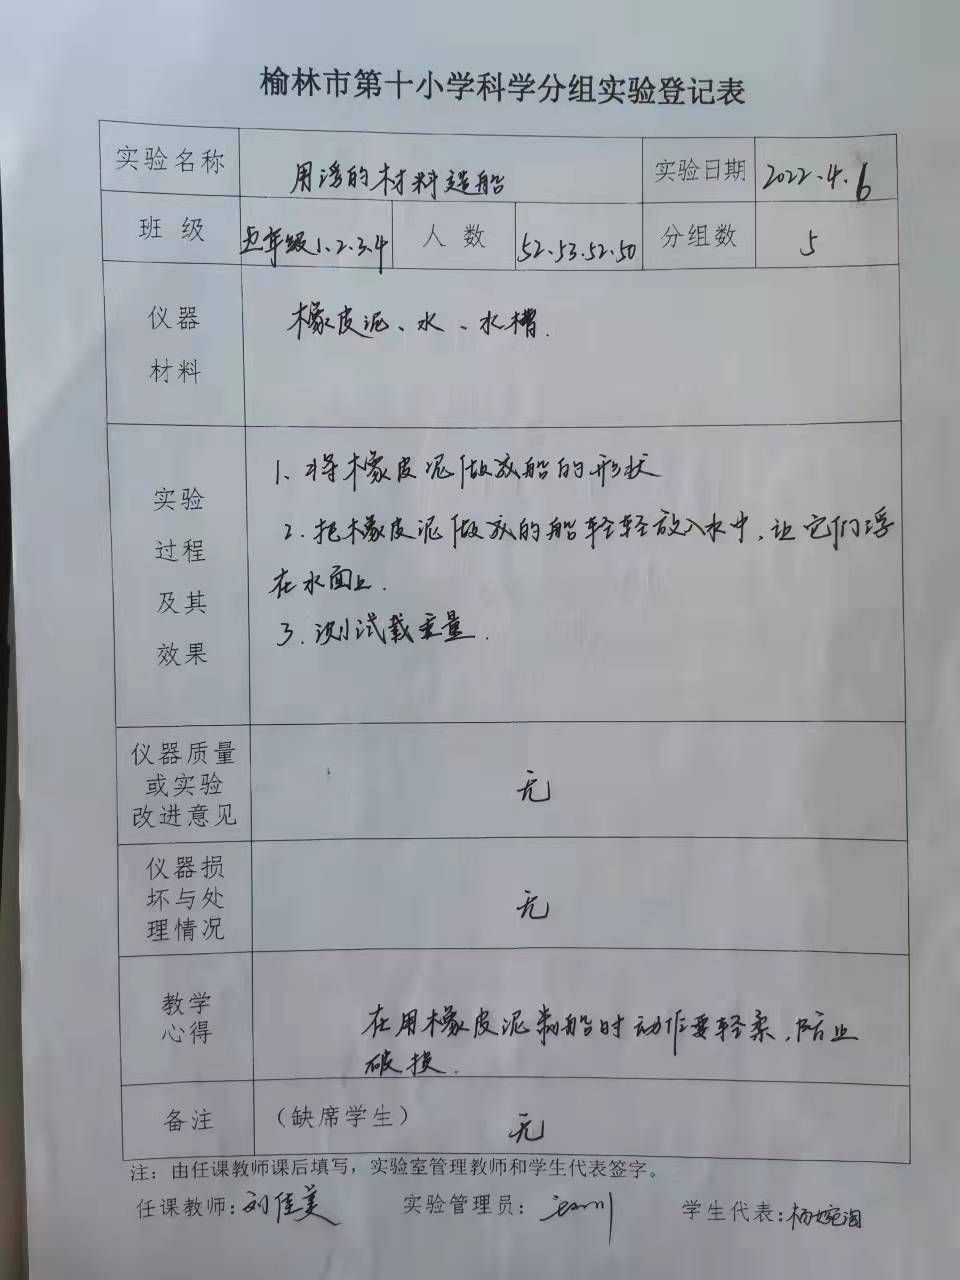 榆林市第十小学科学分组实验登记表
实验名称 用浮的材料造船 实验日期 2022.4.6
班 级 五年级1.2.3.4 人 数 52.53.52.50 分组数 5
仪器
材料
橡皮泥、水、水槽.
实验
过程
及其
效果
1、将橡皮泥做成船的形状
2.把橡皮泥做成的船轻轻放入水中,让它们浮
在水面上.
3.测试载重量.
仪器质量
或实验
改进意见
无
仪器损
坏与处
理情况
无
教学
心得
在用橡皮泥制船时动作要轻柔,防止
破损.
备注 (缺席学生) 无
注：由任课教师课后填写，实验室管理教师和学生代表签字。
任课教师:刘佳美 实验管理员: 学生代表:杨婉